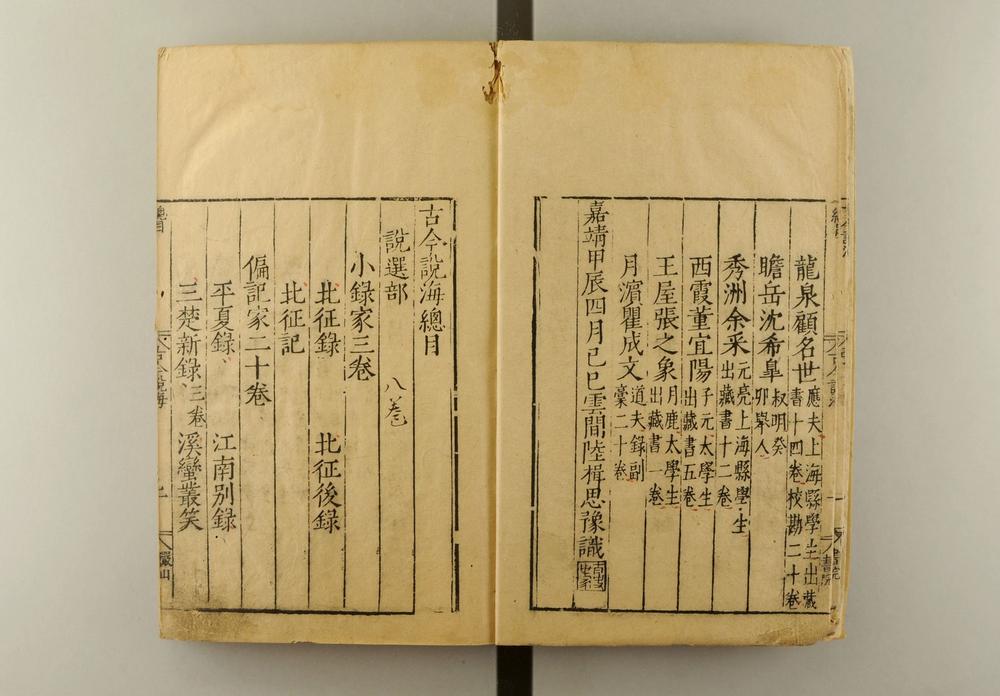 龍泉顧名世應夫上海縣學生出藏書十四卷校勘二十卷
瞻岳沈希皐叔明癸卯舉人
秀洲余采元亮上海縣學生出藏書十二卷
西霞董宜陽子元太學生出藏書五卷
王屋張之象月鹿太學生出藏書一卷
月濱瞿成文道夫錄副藁二十卷
嘉靖甲辰四月己巳雲間陸楫思豫識
古今說海總目
說選部 八卷
小錄家三卷
北征錄 北征後錄
北征記
偏記家二十卷
平夏錄 江南別錄
三楚新錄三卷 溪蠻叢笑
總目
古今說海